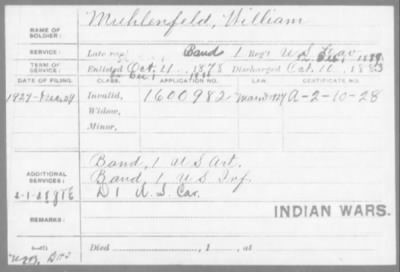 NAME OF SOLDIER: Muehlenfeld, William
SERVICE: Late rank, Band 1 Reg't U.S. Cav.
TERM OF SERVICE: Enlisted Oct. 11, 1878 Discharged Oct. 10, 1883
DATE OF FILING. CLASS. APPLICATION NO. LAW. CERTIFICATE NO.
1927 Invalid, 1600982 A-2-10-28
Widow,
Minor,
ADDITIONAL SERVICES: Band, 1 U S Art.
Band 1 U S Inf.
D 1 U. S. Cav.
REMARKS: INDIAN WARS.
Died , 1 , at